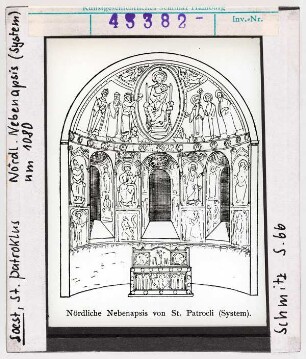 Kunstgeschichtliches Seminar Hamburg
43382- Inv.-Nr.
Soest, St. Patroklus Nördl. Nebenapsis (System)
um 1080
Nördliche Nebenapsis von St. Patrocli (System).
Schmitz S. 66